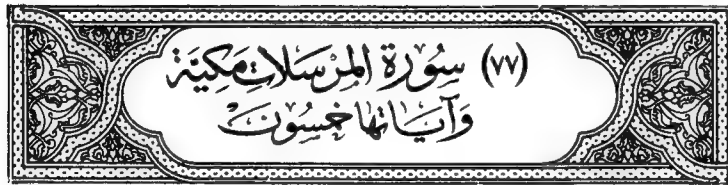 (٧٧) سُورَة المُرسَلاتِ مَكيَّة
وَآيَاتُها خَمسُونَ